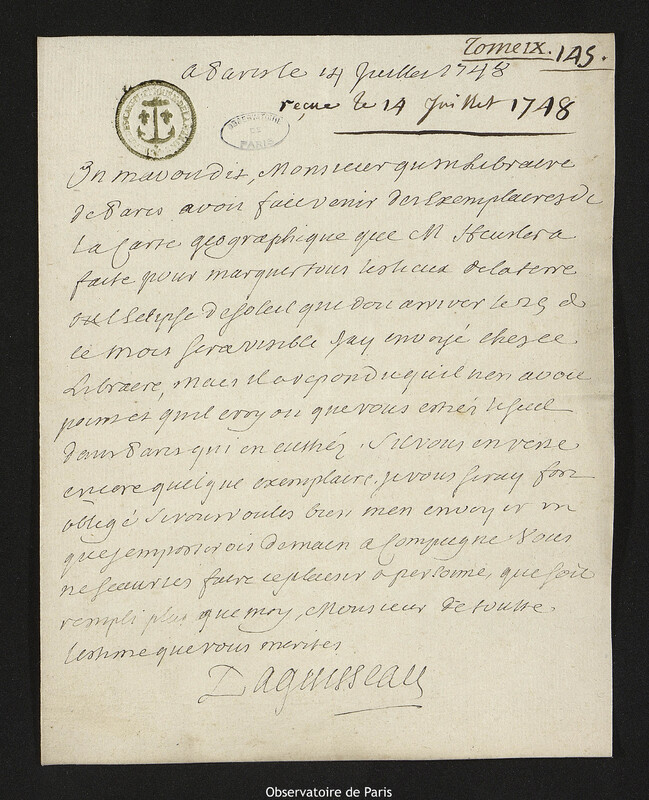 Tome IX. 145.
A Paris le 14 Juillet 1748
reçue le 14 Juillet 1748
OBSERVATOIRE DE PARIS
On m'avoit dit, Monsieur qu'un Libraire
de Paris avoit fait venir des Exemplaires de
la Carte geographique que M. Heusler a
faite pour marquer tous les lieux de la terre
ou l'Eclipse de Soleil que doit arriver le 25 de
ce mois sera visible Jay envoyé chez ce
Libraire, mais il a repondu qu'il n'en avoit
point et qu'il croyoit que vous estiés le seul
dans Paris qui en eussiez. S'il vous en reste
encore quelque exemplaire, je vous seray fort
obligé si vous voulés bien m'en envoyer un
que j'emporterois demain a Compiegne Vous
ne sçauriés faire ce plaisir a personne, que soit
rempli plus que moy, Monsieur de toutte
l'estime que vous merités
Daguesseau
Observatoire de Paris